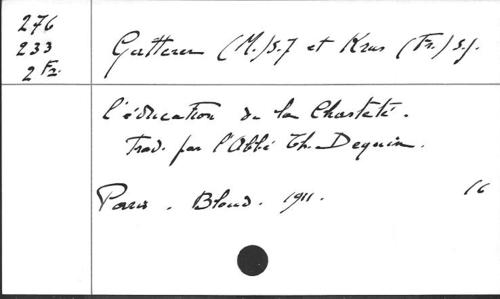 276
233
2 Fr.
Gatterer (M.) s.j et Krus (Fr.) s.j.
L'éducation de la Chasteté.
Trad. par l'Abbé Th. Dequin.
Paris. Bloud. 1911. 16